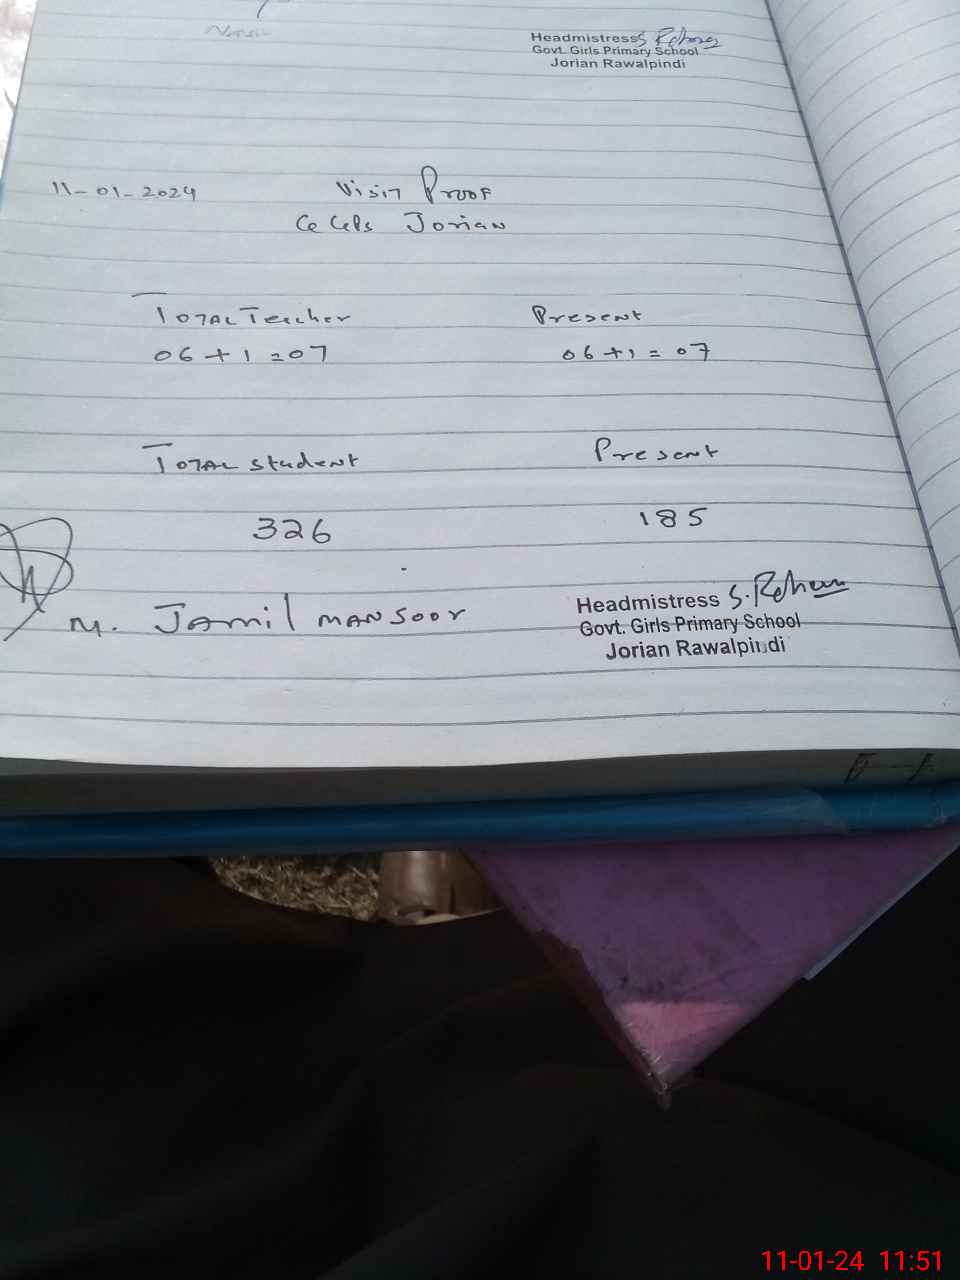 Headmistress S. Rehana
Govt. Girls Primary School
Jorian Rawalpindi
11-01-2024 Visit Proof
GGPS Jorian
Total Teacher Present
06+1=07 06+1=07
Total Student Present
326 185
M. Jamil Mansoor
Headmistress
Govt. Girls Primary School
Jorian Rawalpindi
11-01-24 11:51